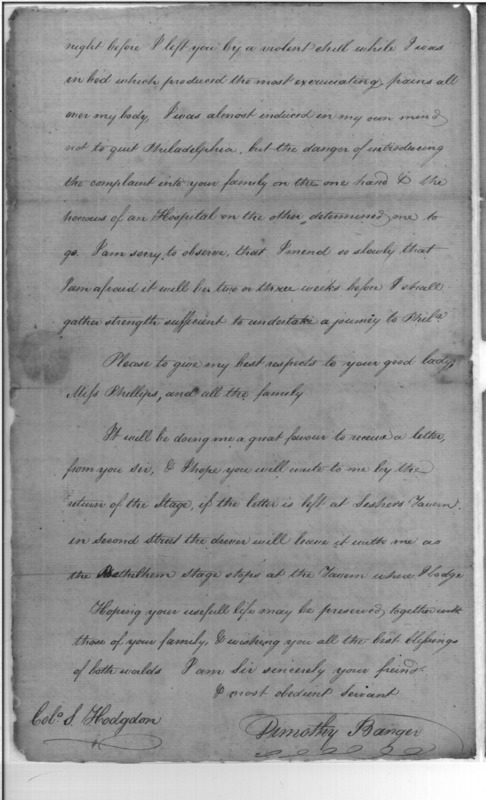 night before I left you by a violent chill while I was
in bed which produced the most excruciating pains all
over my body, I was almost induced in my own mind
not to quit Philadelphia, but the danger of introducing
the complaint into your family on the one hand & the
horrours of an Hospital on the other, determined me to
go. I am sorry to observe, that I mend so slowly that
I am afraid it will be two or three weeks before I shall
gather strength sufficient to undertake a journey to Phila
Please to give my best respects to your good lady,
Miss Phillips, and all the family
It will be doing me a great favour to receive a letter,
from you sir, & I hope you will write to me by the
return of the Stage, if the letter is left at Seshers Tavern
in Second Street the driver will leave it with me as
the Bethlehem Stage stops at the Tavern where I lodge
Hoping your usefull life may be preserved, together with
those of your family, & wishing you all the best blessings
of both worlds I am Sir sincerely your friend
& most obedient Servant
Colo. S. Hodgdon
Timothy Banger